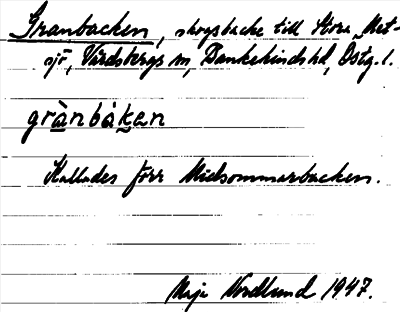 Granbacken, skogsbacke till Stora Met-
sjö, Vårdsbergs sn, Bankekinds hd, Östg. l.
grànbákɛn
Kallades förr Midsommarbacken.
Maja Nordlund 1947.